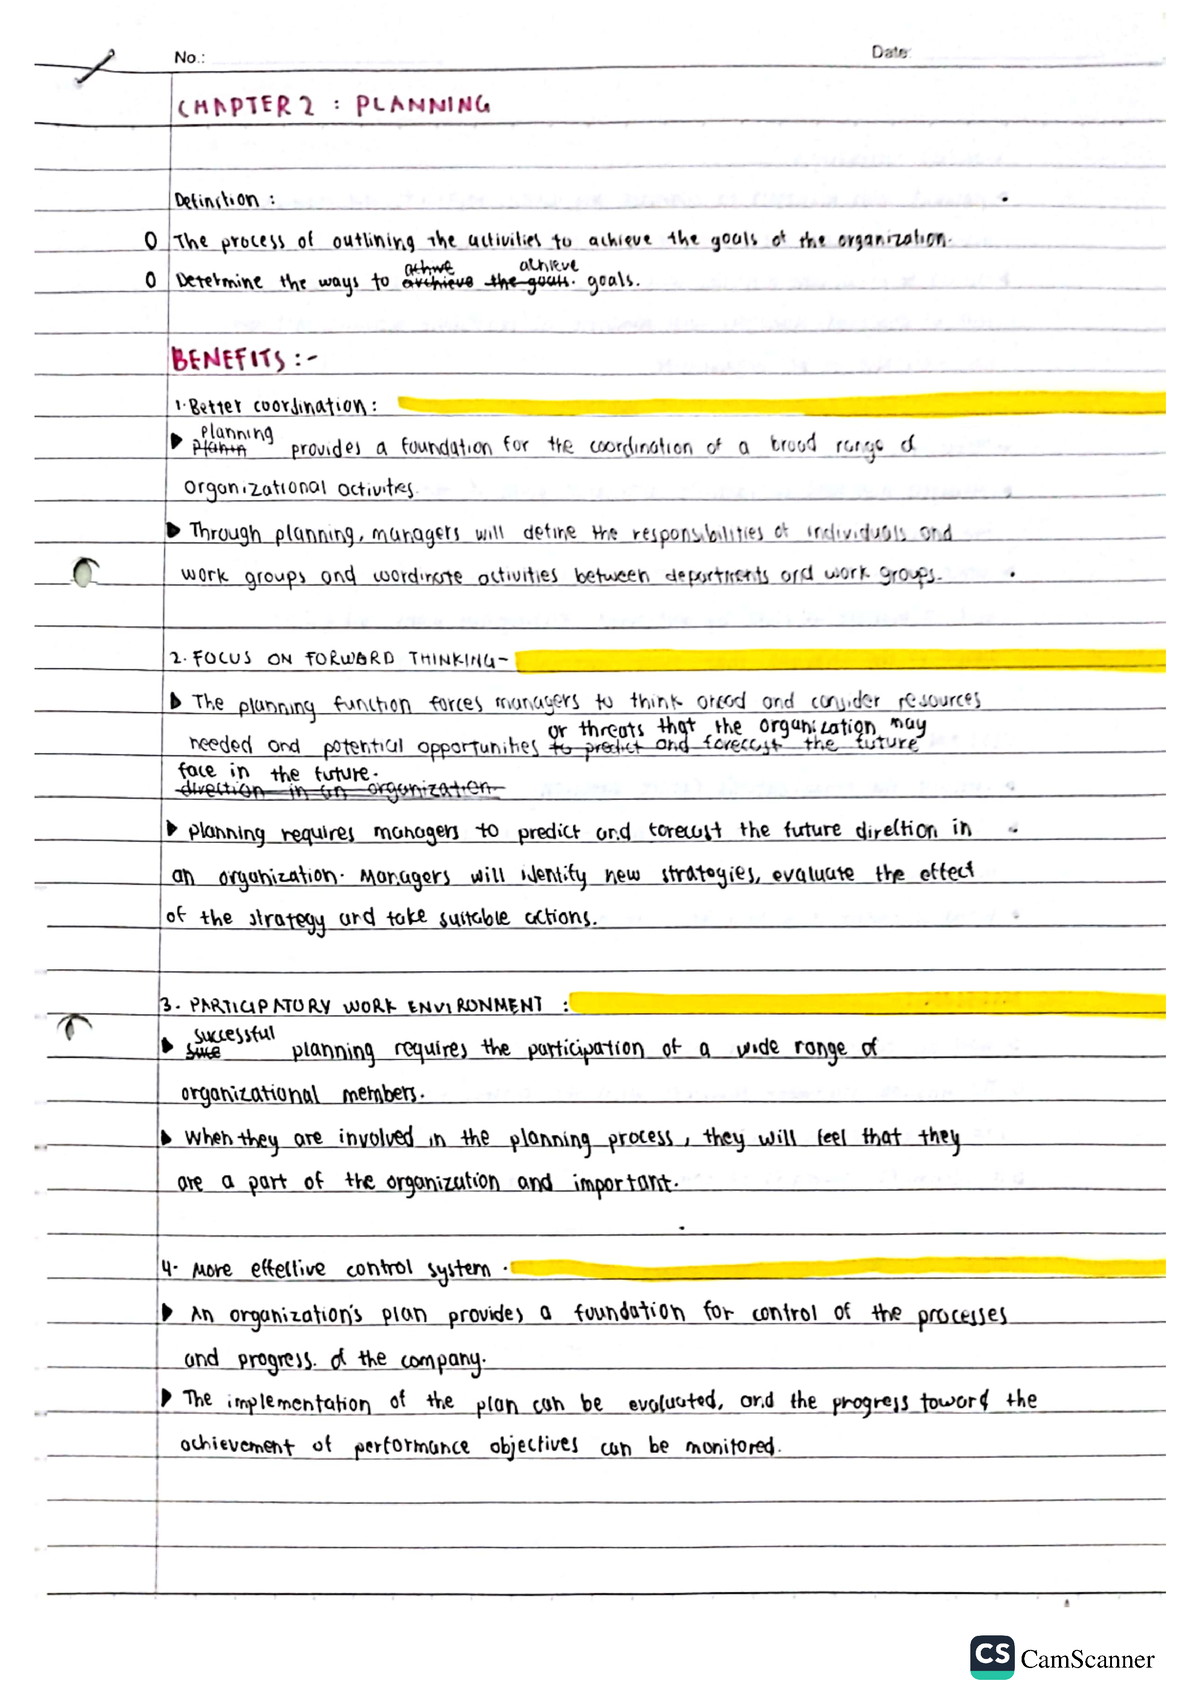 No.:
Date:
CHAPTER 2 : PLANNING
Definition :
O The process of outlining the activities to achieve the goals of the organization.
achive achieve
O Determine the ways to archieve the goals. goals.
BENEFITS :-
1. Better coordination :
planning
▶ Plann provides a foundation for the coordination of a broad range of
organizational activities.
▶ Through planning, managers will define the responsibilities of individuals and
work groups and coordinate activities between departments and work groups.
2. FOCUS ON FORWARD THINKING-
▶ The planning function forces managers to think aread and consider resources
or threats that the organization may
needed and potential opportunities to predict and forecast the future
face in the future.
direction in an organization.
▶ planning requires managers to predict and forecast the future direction in
an organization. Managers will identify new strategies, evaluate the effect
of the strategy and take suitable actions.
3. PARTICIPATORY WORK ENVIRONMENT :
successful
▶ suce planning requires the participation of a wide range of
organizational members.
▶ When they are involved in the planning process, they will feel that they
are a part of the organization and important.
4. More effective control system.
▶ An organization's plan provides a foundation for control of the processes
and progress. of the company.
▶ The implementation of the plan can be evaluated, and the progress toward the
achievement of performance objectives can be monitored.
CS CamScanner